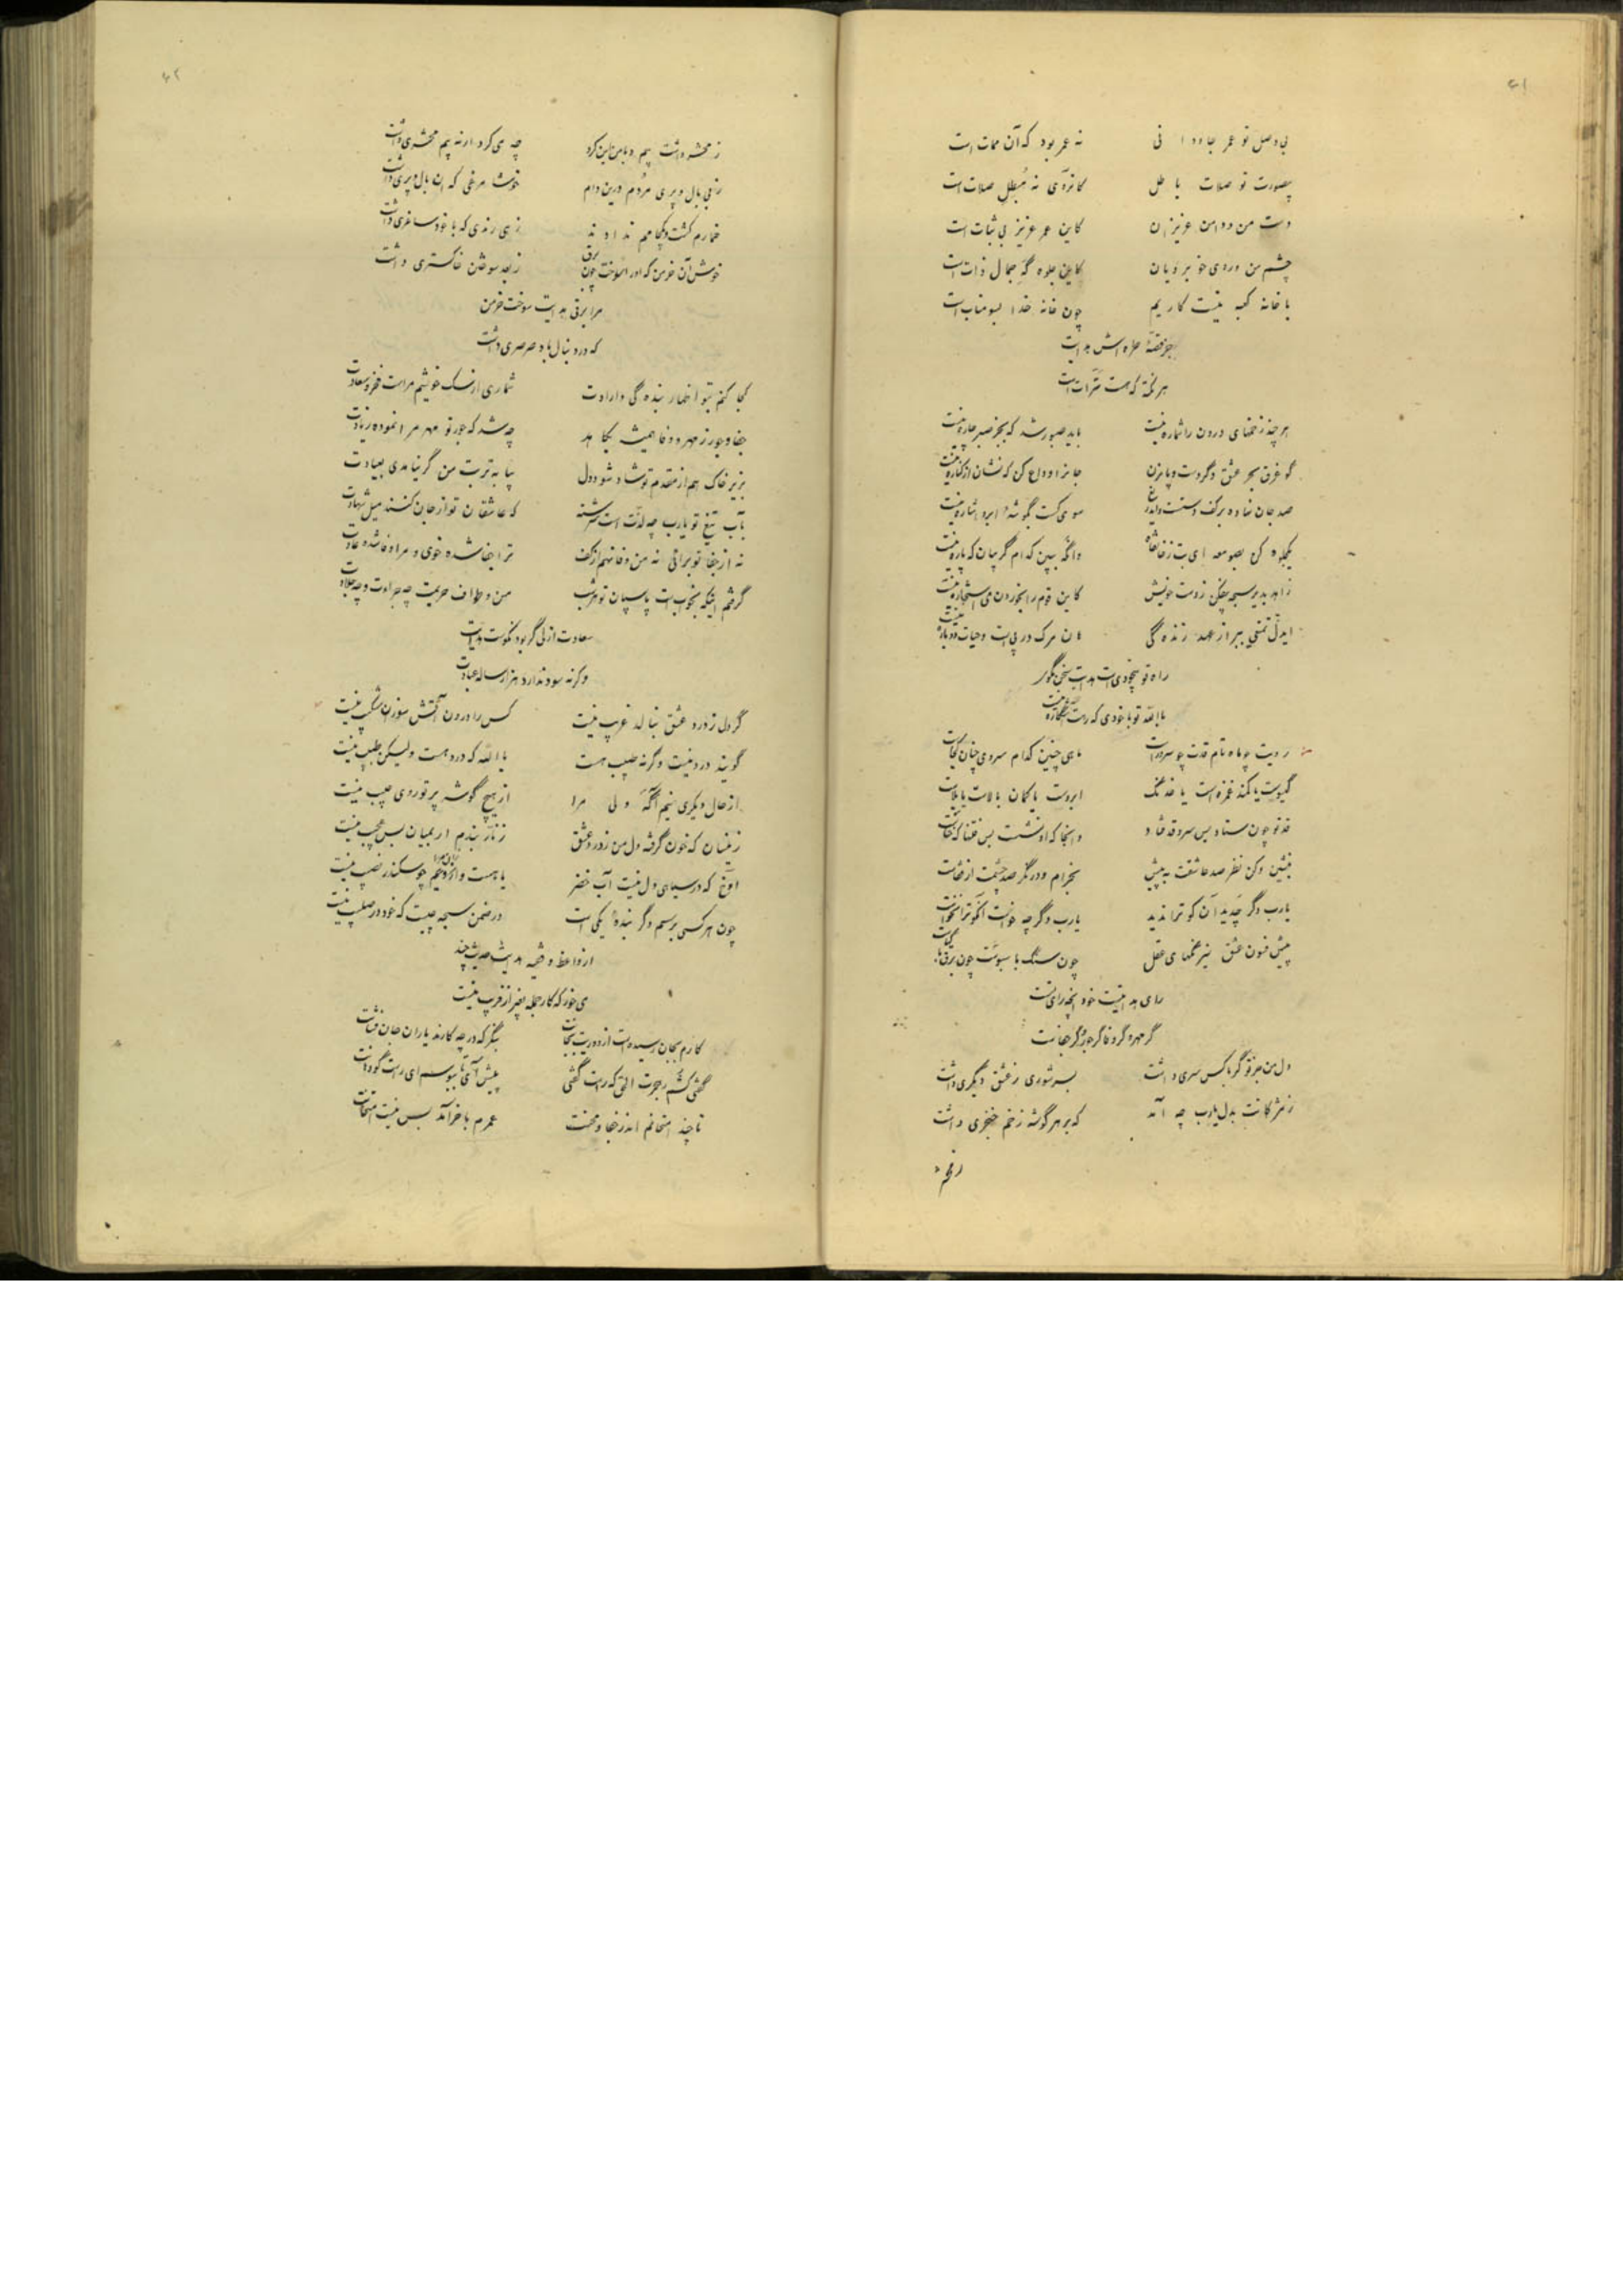 ۴۱
بی وصل تو عمر جاودانی نه عمر بود که آن ممات است
بصورت تو صلات باطل کانروی نه مبطل صلات است
دست من و دامن عزیزان کاین عمر عزیز بی ثبات است
چشم من و روی خوبرویان کاین جلوه گه جمال ذات است
با خانه کعبه نیست کاریم چون خانه خدا بسومنات است
جز قصهٔ طره اش هدایت
هر نکته که هست ترهات است
هر چند زخمهای درون را شماره نیست باید صبور شد که بجز صبر چاره نیست
گو غرق بحر عشق دگر دست و پا مزن جانرا وداع کن که نشان از کناره نیست
صد جان نهاده بر کف دستت و ایدریغ سوی کست بگوشهٔ ابرو اشاره نیست
یکجلوه کن بصومعه ای بت ز خانقاه وانگه ببین کدام گریبان که پاره نیست
زاهد بدیر سبحه بیفکن ز دست خویش کاین قوم را بخوردن می استخاره نیست
ایدل تمتعی ببر از عهد زنده گی هان مرگ در پی است و حیات دوباره نیست
راه تو بیخودی است هدایت سخن مگوی
بالله تو با خودی که رهت
رویت چو ماه تام قدت چو سرو راست ماهی چنین کدام سروی چنان کجاست
گیسوت یا کمند غمزه است یا خدنگ ابروت یا کمان بالات یا بلاست
قد تو چون ستاد بس سرو قد فتاد وانجا که او نشست بس فتنها که خاست
بنشین و کن نظر صد عاشقت به پیش بخرام و در نگر صد چشمت از قفاست
یارب دگر چه دید آن کو ترا ندید یارب دگر چه خواست آنکو ترا نخواست
پیش فنون عشق نیرنگهای عقل چون سنگ با سبوست چون برق با گیاست
رای هدایتت خود آنچه رای تست
گر مهر و گر وفا گر جور گر جفاست
دل من جز تو گر با کس سری داشت بسر شوری ز عشق دیگری داشت
ز مژگانت بدل یارب چه آمد که بر هر گوشه زخم خنجری داشت
ز محشر
۴۲
ز محشر داشت بیم و با من این کرد چه می کرد ار نه بیم محشری داشت
ز بی بال و پری مردم درین دام خوشا مرغی که آن بال و پری داشت
خمارم کشت و یکجامم ندادند زهی رندی که با خود ساغری داشت
خوش آن خرمن که او را سوخت چون برق ز بعد سوختن خاکستری داشت
مرا برقی هدایت سوخت خرمن
که در دنبال باد صرصری داشت
کجا کنم بتو اظهار بنده گی و ارادت شماری ار سگ خویشم مراست فخر و سعادت
جفا و جور ز مهر و وفا همیشه بکاهد چه شد که جور تو مهر مرا نموده زیادت
بزیر خاک هم از مقدم تو شاد شود دل بیا به تربت من گر نیامدی بعیادت
بآب تیغ تو یارب چه لذت است سرشته که عاشقان تو از جان کنند میل شهادت
نه از جفا تو برائی نه من وفا نهم از کف ترا جفا شده خوی و مرا وفا شده عادت
گرفتم اینکه بخوابست پاسبان تو امشب من و طواف حریمت چه جراءت و چه جلادت
سعادت ازلی گر بود نکوست هدایت
وگر نه سود ندارد هزار ساله عبادت
گر دل ز درد عشق بنالد غریب نیست کس را درون آتش سوزان شکیب نیست
گویند درد نیست وگر نه طبیب هست بالله که درد هست ولیکن طبیب نیست
از حال دیگری نیم آگه ولی مرا از هیچ گوشه پرتو روی حبیب نیست
زینسان که خون گرفته دل من ز درد عشق زنار بندم ار بمیان بس عجیب نیست
آوخ که در سیاهی دل نیست آب خضر یا هست و چو سکندر نصیب نیست
چون هر کسی برسم دگر بندهٔ یکی است در ضمن سبحه چیست که خود در صلیب نیست
از واعظ و فقیه هدایت حدیث چند
می خور که کار جمله بغیر از فریب نیست
کارم بجان رسیده است از دوریت بجانت بنگر که در چه کارند یاران جان فشانت
گفتی کشم زهجرت الحق که راست گفتی پیش آی تا ببوسم ای راست گو دهانت
تا چند امتحانم اندر جفا و محنت عمرم بآخر آمد بس نیست امتحانت